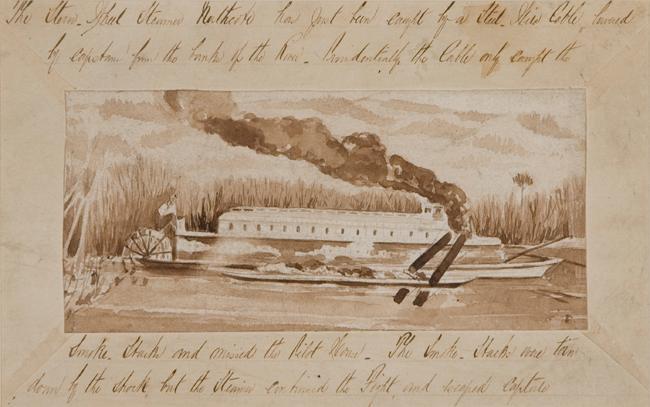 The Stern-Wheel Steamer has just been caught by a Steel-Wire Cable, lowered
by capstan from the bank of the River - Providentially the Cable only caught the
Smoke-Stacks and missed the Pilot House - The Smoke-Stacks were torn
down by the shock, but the Steamer continued the Fight, and escaped Capture